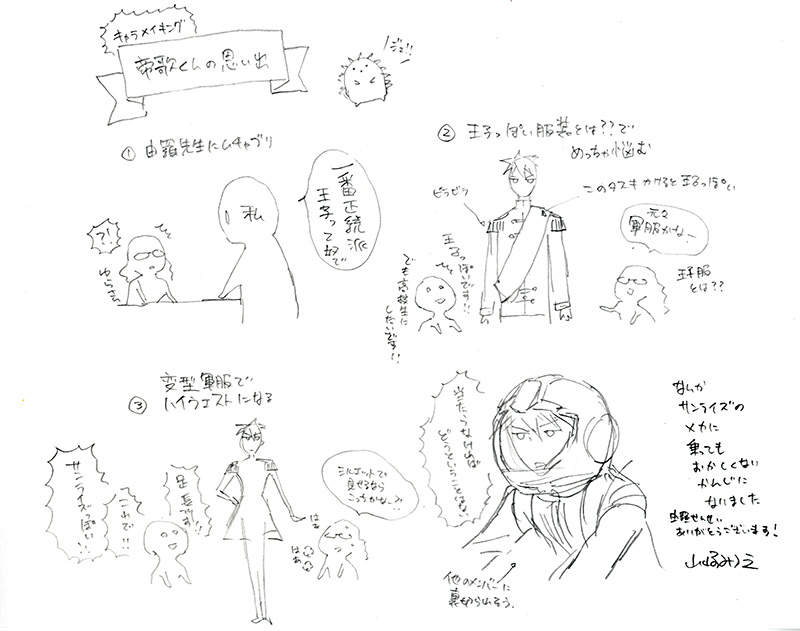 キャラメイキング
帝歌くんの思い出
ジュ!!
① 由羅先生にムチャブリ
一番正統派
王子って奴で
私
?!
ゆらさん
② 王子っぽい服装とは??で
めっちゃ悩む
ピラピラ
このタスキかけると王子っぽい
王子っぽいです!!
でも高校生に
したいです!!
元々
軍服かな〜
王子服
とは??
③ 変型軍服で
ハイウエストになる
サンライズっぽい!!
これで!!
足長です!!
シルエットで
見せるなら
こっちかな〜?
はぁ
はぁ
当たらなければ
どうということはない
他のメンバーに
裏切られそう。
なんか
サンライズの
メカに
乗ってても
おかしくない
かんじに
なりました
由羅せんせい
ありがとうございます!